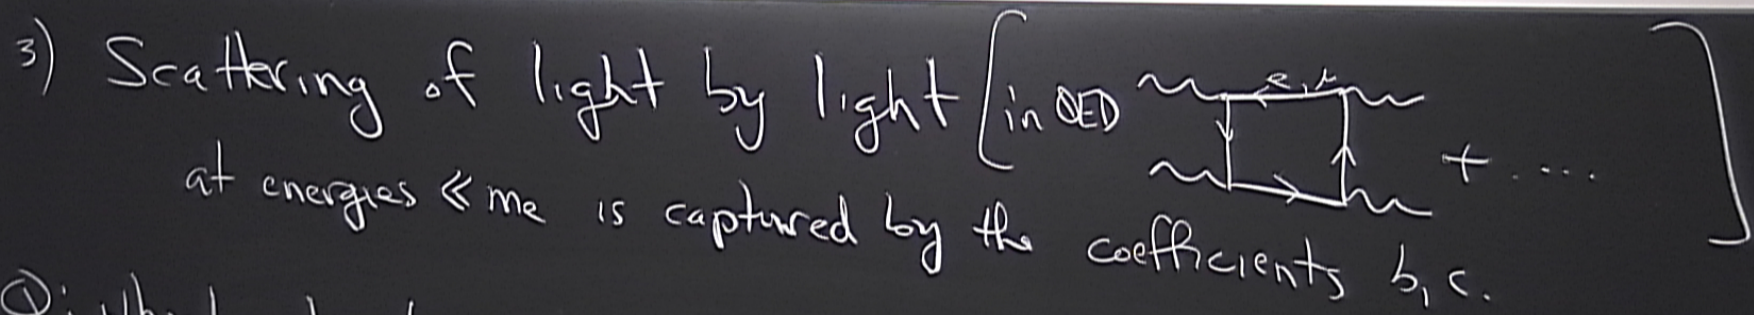 3) Scattering of light by light [in QED e, μ + .... ]
at energies ≪ me is captured by the coefficients b, c.